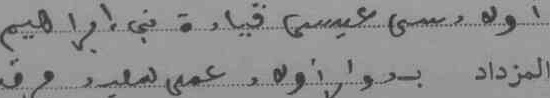 اولاد سي عيسى قيادة بني إبراهيم
المزداد بدوار أولاد عمي لعيد فرق